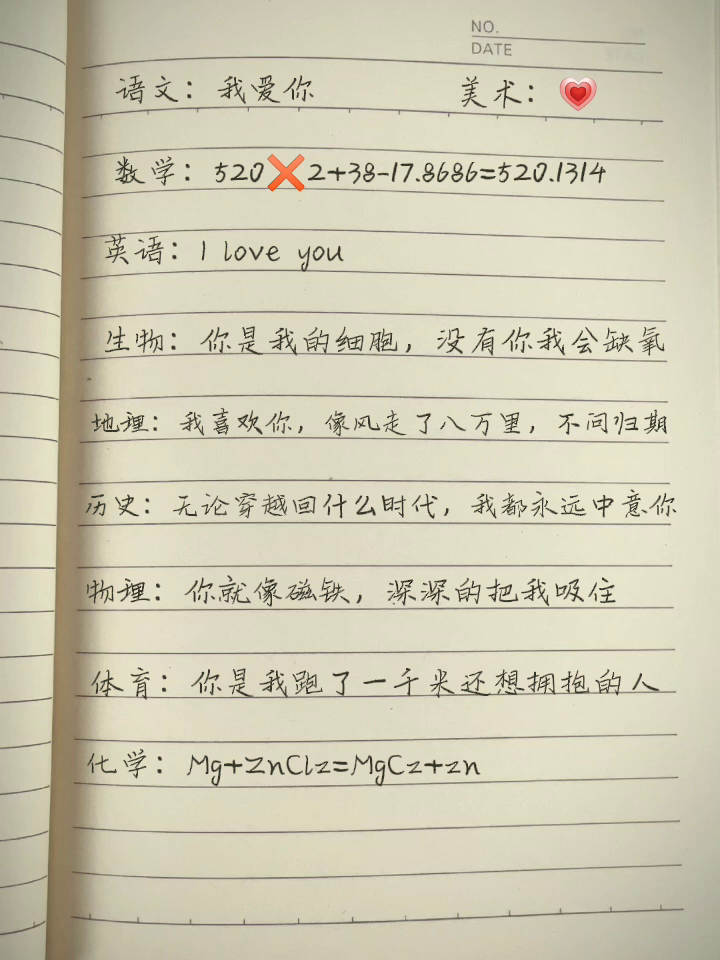 NO.
DATE
语文：我爱你 美术：💗
数学：520❌2+38-17.8686=520.1314
英语：I love you
生物：你是我的细胞，没有你我会缺氧
地理：我喜欢你，像风走了八万里，不问归期
历史：无论穿越回什么时代，我都永远中意你
物理：你就像磁铁，深深的把我吸住
体育：你是我跑了一千米还想拥抱的人
化学：Mg+ZnClz=MgCz+zn